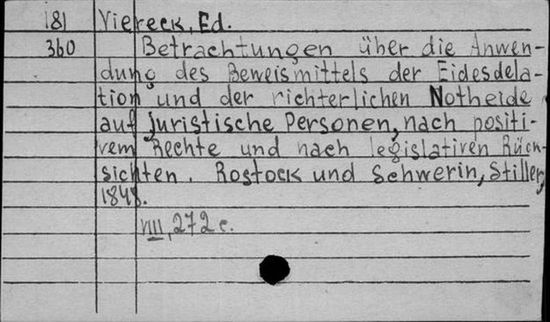 181 Viereck, Ed.
360 Betrachtungen über die Anwen-
dung des Beweismittels der Eidesdela-
tion und der richterlichen Notheide
auf juristische Personen, nach positi-
vem Rechte und nach legislativen Rück-
sichten. Rostock und Schwerin, Stiller,
1848.
VIII, 272 c.